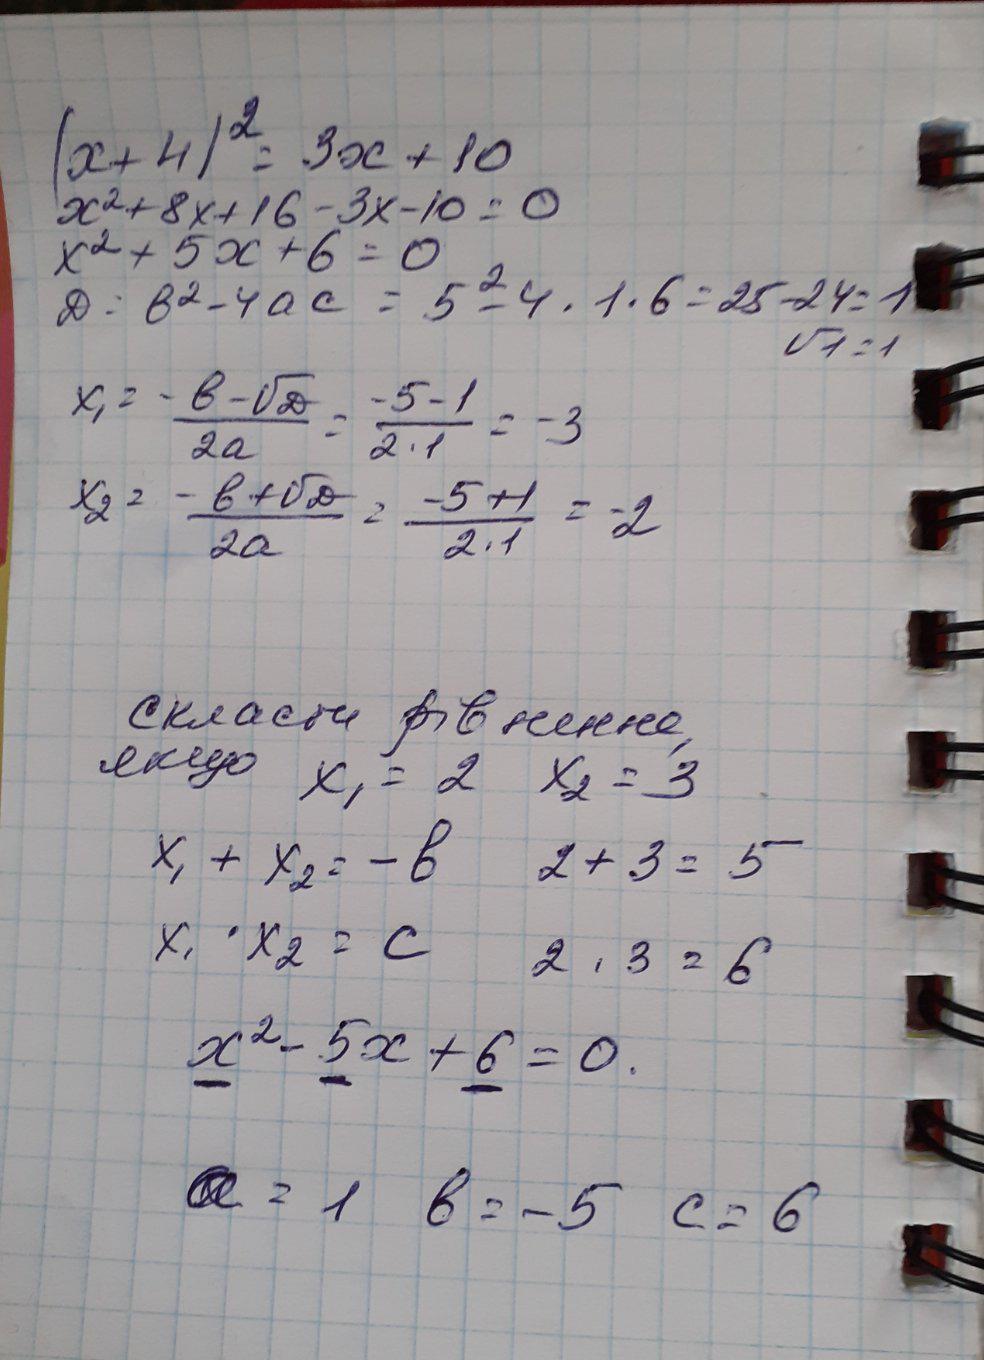 (x+4)² = 3x+10
x²+8x+16-3x-10=0
x²+5x+6=0
D = в²-4ac = 5²-4·1·6=25-24=1
√1=1
x₁= -в-√D/2a = -5-1/2·1 = -3
x₂= -в+√D/2a = -5+1/2·1 = -2
скласти рівнення,
якщо x₁=2 x₂=3
x₁+x₂=-в 2+3=5
x₁·x₂=c 2·3=6
x²-5x+6=0.
a=1 в=-5 c=6